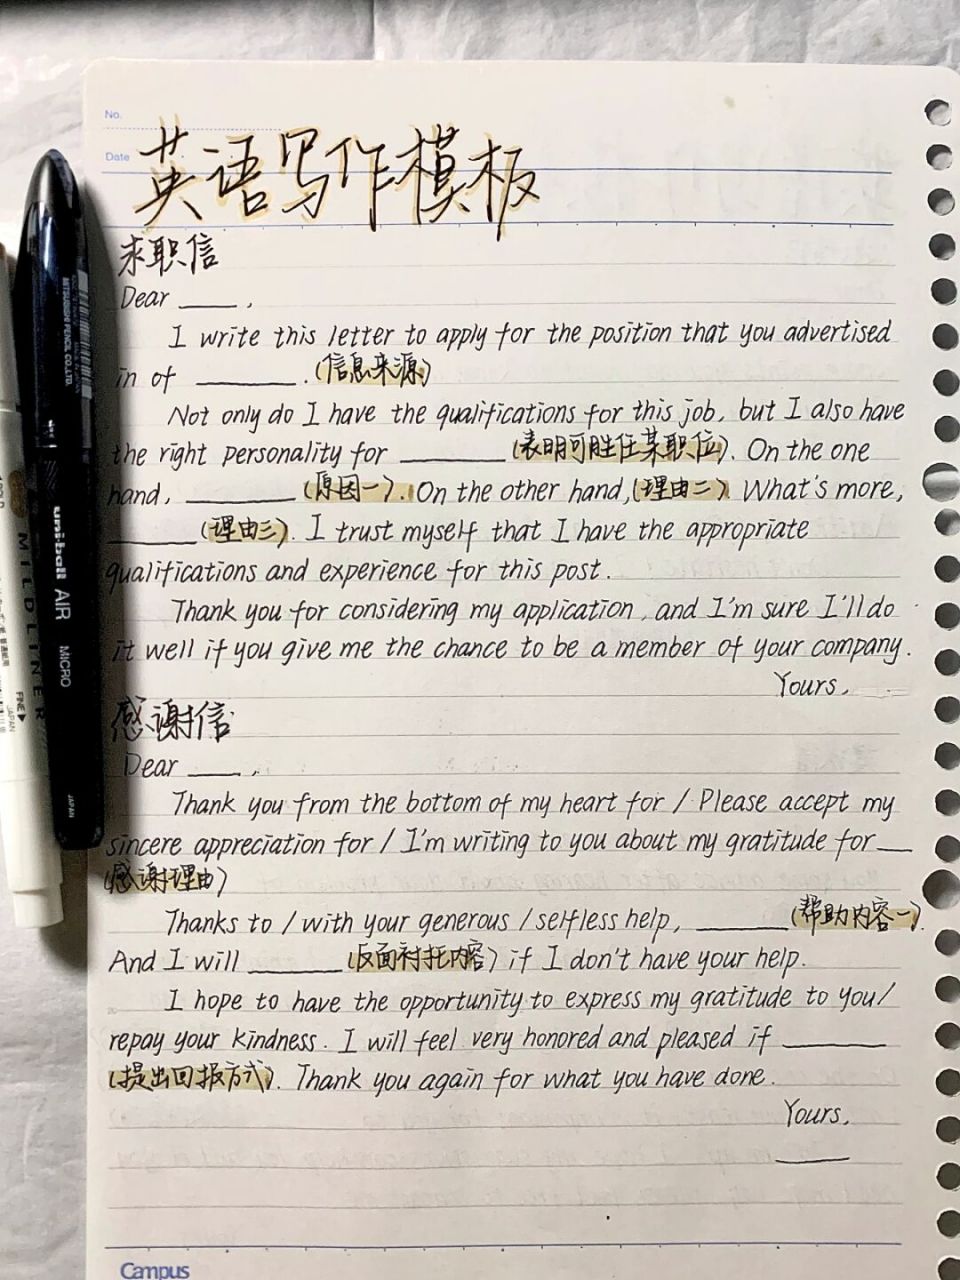 No.
Date
英语写作模板
求职信
Dear ____ ,
I write this letter to apply for the position that you advertised
in of ________ . (信息来源)
Not only do I have the qualifications for this job, but I also have
the right personality for ________ (表明可胜任某职位). On the one
hand, ________ (原因一). On the other hand, (理由二) What's more,
________ (理由三). I trust myself that I have the appropriate
qualifications and experience for this post.
Thank you for considering my application, and I'm sure I'll do
it well if you give me the chance to be a member of your company.
Yours,
感谢信
Dear ____ ,
Thank you from the bottom of my heart for / Please accept my
sincere appreciation for / I'm writing to you about my gratitude for ___
(感谢理由)
Thanks to / with your generous / selfless help, ________ (帮助内容一).
And I will ________ (反面衬托内容) if I don't have your help.
I hope to have the opportunity to express my gratitude to you/
repay your kindness. I will feel very honored and pleased if ________
(提出回报方式). Thank you again for what you have done.
Yours,
______
Campus
MITSUBISHI PENCIL CO.LTD.
uni-ball AIR MICRO
JAPAN
MILDLINER
FINE
JAPAN